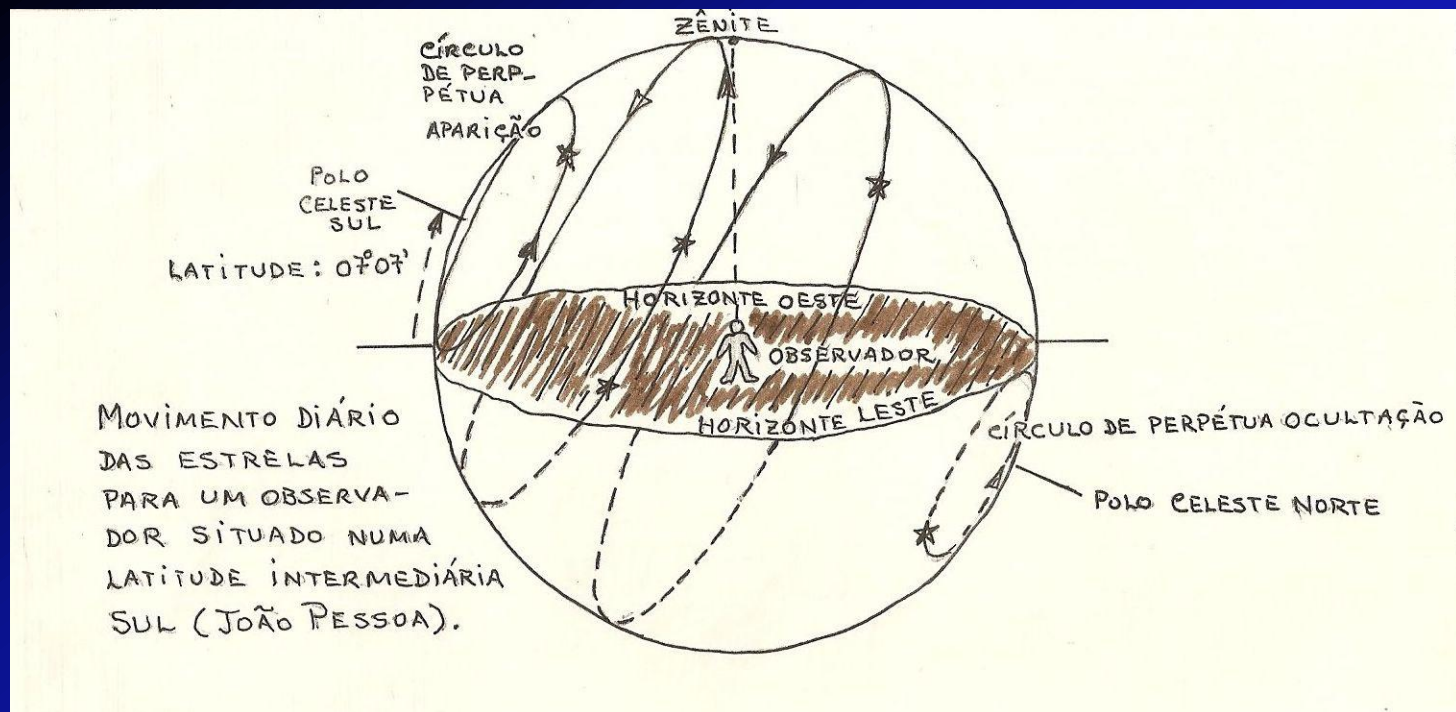 ZÊNITE
CÍRCULO
DE PERP-
PÉTUA
APARIÇÃO
POLO
CELESTE
SUL
LATITUDE: 07º07'
HORIZONTE OESTE
OBSERVADOR
HORIZONTE LESTE
CÍRCULO DE PERPÉTUA OCULTAÇÃO
POLO CELESTE NORTE
MOVIMENTO DIÁRIO
DAS ESTRELAS
PARA UM OBSERVA-
DOR SITUADO NUMA
LATITUDE INTERMEDIÁRIA
SUL (JOÃO PESSOA).